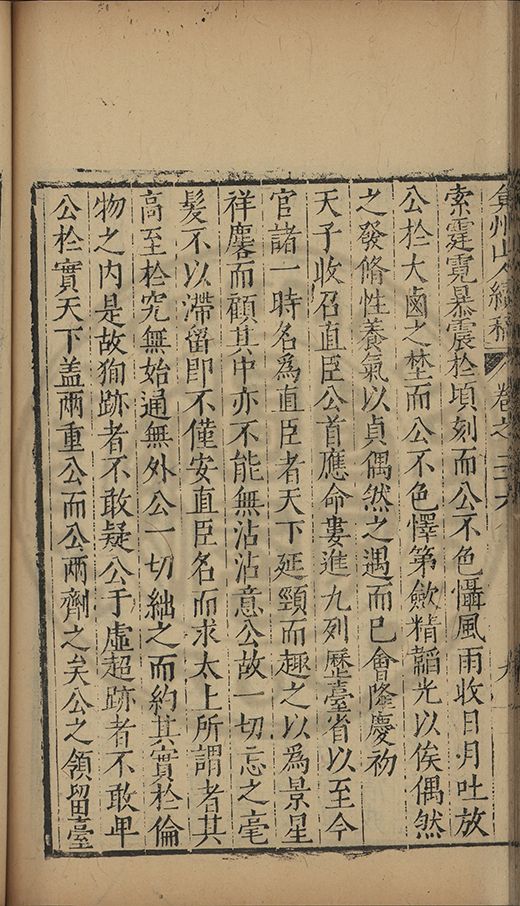 弇州山人續稿 卷之三六 九
索霆霓暴震於頃刻而公不色懾風雨收日月吐放
公於大鹵之埜而公不色懌第歛精韜光以俟偶然
之發脩性養氣以貞偶然之遇而已會隆慶初
天子收召直臣公首應命婁進九列歷臺省以至今
官諸一時名爲直臣者天下延頸而趣之以爲景星
祥麐而顧其中亦不能無沾沾意公故一切忘之毫
髮不以滯留卽不僅安直臣名而求太上所謂者其
高至於究無始通無外公一切絀之而約其實於倫
物之內是故狥跡者不敢疑公于虛超跡者不敢卑
公於實天下盖兩重公而公兩劑之矣公之領留臺